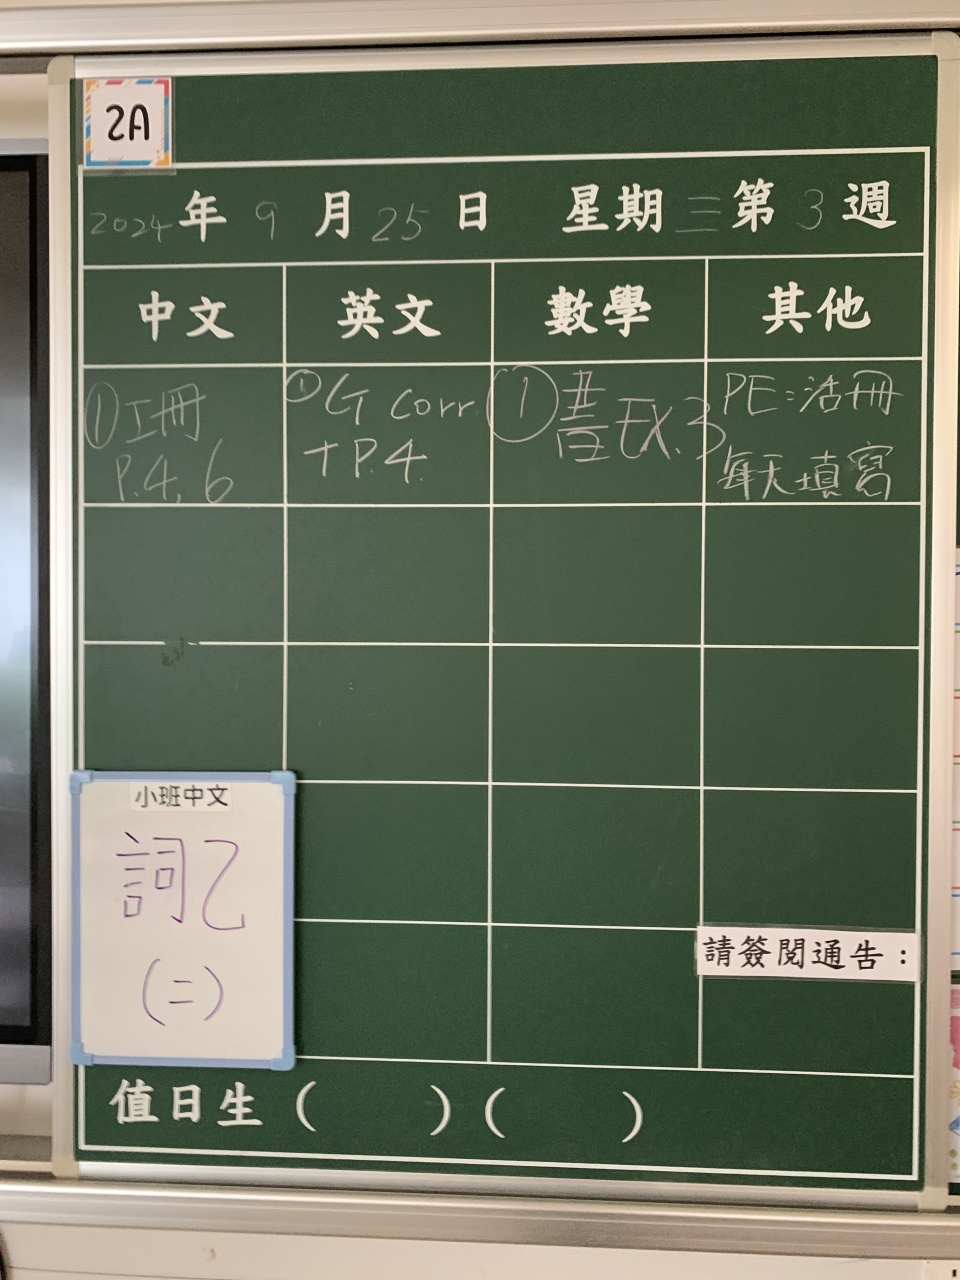 2A
2024年9月25日 星期三第3週
中文 英文 數學 其他
①工冊
P.4, 6
①G Corr
+P.4.
①書EX.3
PE:活冊
每天填寫
小班中文
詞乙
(二)
請簽閱通告：
值日生( )( )